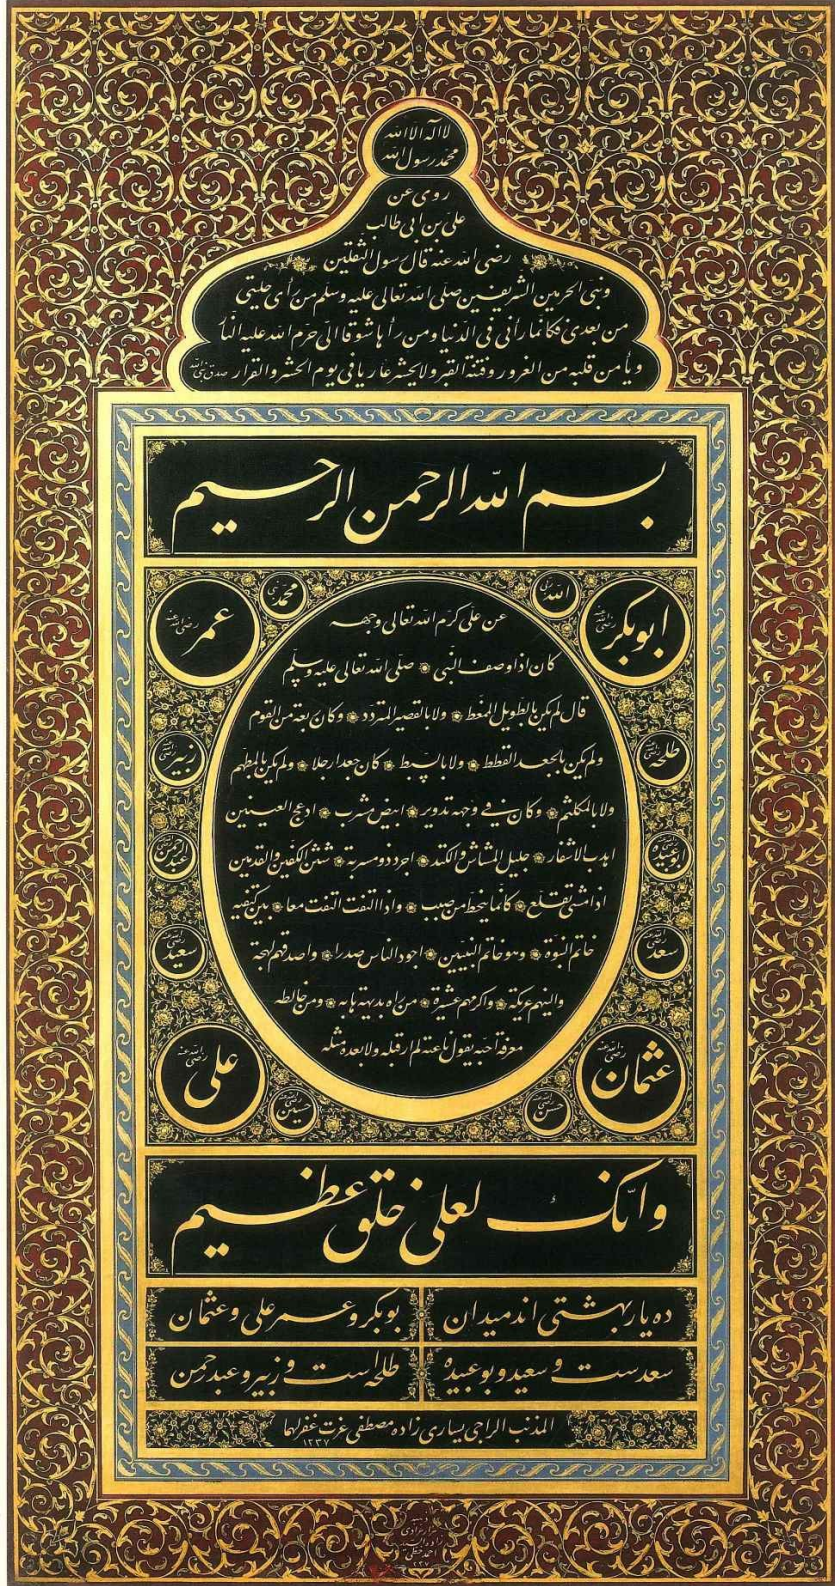 لا اله الا الله
محمد رسول الله
روى عن
على بن ابى طالب
رضى الله عنه قال رسول الثقلين
ونبى الحرمين الشريفين صلى الله تعالى عليه وسلم من رأى حليتى
من بعدى فكانما رأنى فى الدنيا ومن رأها شوقا الى حرم الله عليه النار
ويأمن قلبه من الغرور وفتنة القبر ولا يحشر عاريا فى يوم الحشر والقرار صدق نبى الله
بسم الله الرحمن الرحيم
الله
محمد
ابوبكر رضى الله عنه
عمر رضى الله عنه
عن على كرم الله تعالى وجهه
كان اذا وصف النبى صلى الله تعالى عليه وسلم
قال لم يكن بالطويل الممغط ولا بالقصير المتردد وكان ربعة من القوم
ولم يكن بالجعد القطط ولا بالسبط كان جعدا رجلا ولم يكن بالمطهم
ولا بالمكلثم وكان فى وجهه تدوير ابيض مشرب ادعج العينين
اهدب الاشفار جليل المشاش والكتد اجرد ذو مسربة شثن الكفين والقدمين
اذا مشى تقلع كانما ينحط من صبب واذا التفت التفت معا بين كتفيه
خاتم النبوة وهو خاتم النبيين اجود الناس صدرا واصدقهم لهجة
والينهم عريكة واكرمهم عشيرة من راه بديهة هابه ومن خالطه
معرفة احبه يقول ناعته لم ار قبله ولا بعده مثله
طلحه
زبير
ابوعبيده
عبدالرحمن
سعد
سعيد
عثمان رضى الله عنه
على رضى الله عنه
حسن
حسين
وانك لعلى خلق عظيم
ده يار بهشتى اند ميدان
بوبكر وعمر على وعثمان
سعدست وسعيد وبوعبيده
طلحه است وزبير وعبدرحمن
المذنب الراجى يسارى زاده مصطفى عزت غفرلهما
١٢٣٧